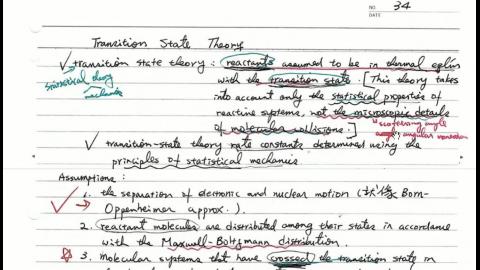 NO. 34
DATE
Transition State Theory
✓ transition state theory : reactants assumed to be in thermal eqlm
statistical theory
with the transition state. [This theory takes
mechanics
into account only the statistical properties of
reactive systems, not the microscopic details
of molecular collisions.]
scattering angle
angular momentum
✓ transition-state theory rate constants determined using the
principles of statistical mechanics
Assumptions :
1. the separation of electronic and nuclear motion (就像 Born-
Oppenheimer approx.).
2. reactant molecules are distributed among their states in accordance
with the Maxwell-Boltzmann distribution.
3. Molecular systems that have crossed the transition state in